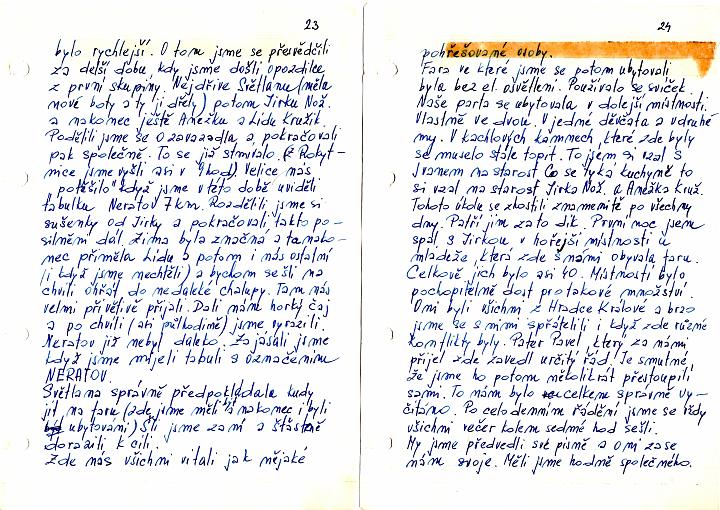 23
bylo rychlejší. O tom jsme se přesvědčili
za delší dobu, kdy jsme došli opozdilce
z první skupiny. Nejdříve Světlanu (měla
nové boty a ty ji dřely) potom Jirku Nož.
a nakonec ještě Anežku a Lídu Kružík.
Podělili jsme se o zavazadla a pokračovali
pak společně. To se již stmívalo. (z Rokyt-
nice jsme vyšli asi v hod) Velice nás
potěšilo když jsme v této době uviděli
tabulku Neratov 7km. Rozdělili jsme si
sušenky od Jirky a pokračovali takto po-
silněni dál. Zima byla značná a ta nako-
nec přiměla Lídu a potom i nás ostatní
(i když jsme nechtěli) a bychom se šli na
chvíli ohřát do nedaleké chalupy. Tam nás
velmi přívětivě přijali. Dali nám horký čaj
a po chvíli (asi půlhodině) jsme vyrazili.
Neratov již nebyl daleko. Zajásali jsme
když jsme míjeli tabuli s označením
NERATOV.
Světlana správně předpokládala kudy
jít na faru (zde jsme měli a nakonec i byli
ubytováni) Šli jsme za ní a šťastně
dorazili k cíli.
Zde nás všichni vítali jak nějaké
24
pohřešované osoby.
Fara ve které jsme se potom ubytovali
byla bez el. osvětlení. Používalo se svíček.
Naše parta se ubytovala v dolejší místnosti.
Vlastně ve dvou. V jedné děvčata a v druhé
my. V kachlových kamnech, které zde byly
se muselo stále topit. To jsem si vzal s
Ivanem na starost. Co se týká kuchyně to
si vzal na starost Jirka Nož. a Anežka Kruž.
Tohoto úkolu se zhostili znamenitě po všechny
dny. Patří jim za to dík. První noc jsem
spal s Jirkou v hořejší místnosti u
mládeže, která zde s námi obývala faru.
Celkově jich bylo asi 40. Místností bylo
pochopitelně dost pro takové množství.
Oni byli všichni z Hradce Králové a brzo
jsme se s nimi spřátelili i když zde různé
konflikty byly. Páter Pavel, který za námi
přijel zde zavedl určitý řád. Je smutné,
že jsme ho potom několikrát přestoupili
sami. To nám bylo celkem správně vy-
čítáno. Po celodenním řádění jsme se vždy
všichni večer kolem sedmé hod sešli.
My jsme předvedli své písně a oni zase
nám svoje. Měli jsme hodně společného.